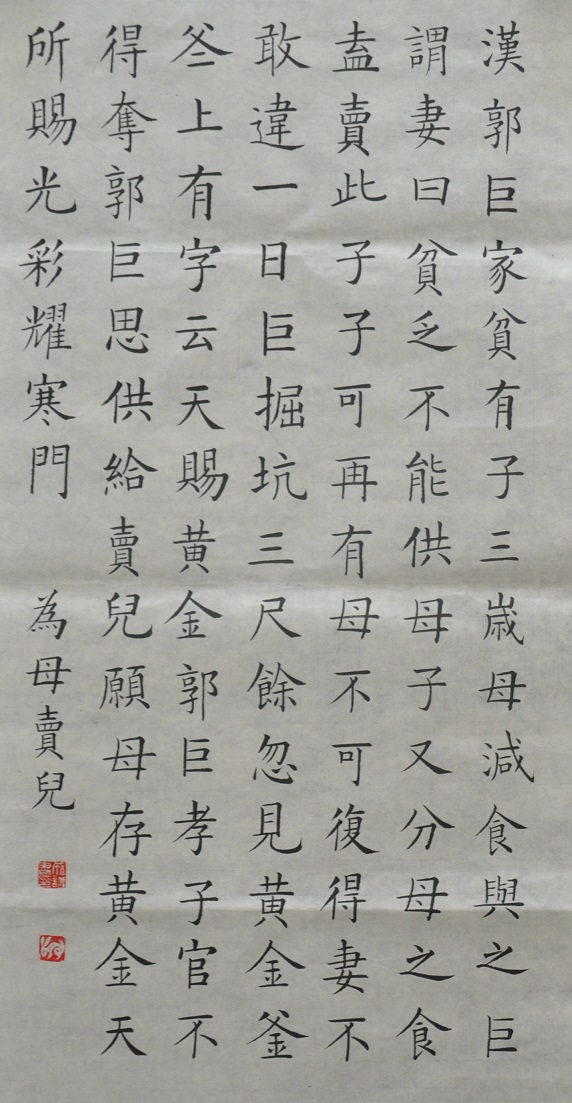 漢郭巨家貧有子三歲母減食與之巨
謂妻曰貧乏不能供母子又分母之食
盍賣此子子可再有母不可復得妻不
敢違一日巨掘坑三尺餘忽見黃金釜
釜上有字云天賜黃金郭巨孝子官不
得奪郭巨思供給賣兒願母存黃金天
所賜光彩耀寒門 為母賣兒